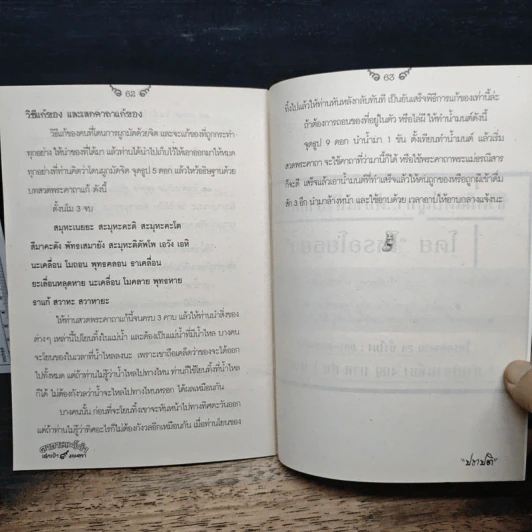 62
วิธีแก้ของ และเสกคาถาแก้ของ
วิธีแก้ของคนที่โดนการผูกมัดด้วยจิต และจะแก้ของที่ถูกกระทำ
ทุกอย่าง ให้นำของที่ได้มา แล้วท่านได้นำไปเก็บไว้ให้เอาออกมาให้หมด
ทุกอย่างที่ท่านคิดว่าโดนผูกมัดจิต จุดธูป 5 ดอก แล้วไหว้อธิษฐานด้วย
บทสวดพระคาถาแก้ ดังนี้
ตั้งนโม 3 จบ
สมุหะเนยยะ สะมุหะคะติ สะมุหะคะโต
สีมาคะตัง พัทธะเสมายัง สะมุหะติตัพโพ เอวัง เอหิ
นะเคลื่อน โมถอน พุทธคลอน ธาเคลื่อน
ยะเลื่อนหลุดหาย นะเคลื่อน โมคลาย พุทธหาย
ธาแก้ สวาหะ สวาหายะ
ให้ท่านสวดพระคาถาแก้นี้จนครบ 3 คาบ แล้วให้ท่านนำสิ่งของ
ต่างๆ เหล่านี้ไปโยนทิ้งในแม่น้ำ และต้องเป็นแม่น้ำที่มีน้ำไหล บางคน
จะโยนของในเวลาที่น้ำไหลลงนะ เพราะเขาถือเคล็ดว่าของจะได้ออก
ไปทั้งหมด แต่ถ้าท่านไม่รู้ว่าน้ำไหลไปทางไหน ท่านก็ใช้โยนทิ้งที่น้ำไหล
ก็ได้ ไม่ต้องกังวลว่าน้ำจะไหลไปทางไหนหรอก ได้ผลเหมือนกัน
บางคนนั้น ก่อนที่จะโยนทิ้งเขาจะหันหน้าไปทางทิศตะวันออก
แต่ถ้าท่านไม่รู้ว่าทิศอะไรก็ไม่ต้องกังวลอีกเหมือนกัน เมื่อท่านโยนของ
63
ทิ้งไปแล้วให้ท่านหันหลังกลับทันที เป็นอันเสร็จพิธีการแก้ของเท่านี้ล่ะ
ถ้าต้องการถอนของที่อยู่ในตัว หรือโลหิ ให้ทำน้ำมนต์ดังนี้
จุดธูป 9 ดอก นำน้ำมา 1 ขัน ตั้งเทียนทำน้ำมนต์ แล้วเริ่ม
สวดพระคาถา จะใช้คาถาที่ว่ามานี้ก็ได้ หรือใช้พระคาถาพระแม่ธรณีสาร
ก็จะดี เสร็จแล้วเอาน้ำมนต์ที่ทำเสร็จแล้วให้คนถูกของหรือถูกผีเข้าดื่ม
สัก 3 อึก นำมาล้างหน้า และใช้อาบด้วย เวลาอาบให้อาบกลางแจ้งนะ
"ปราบผี"